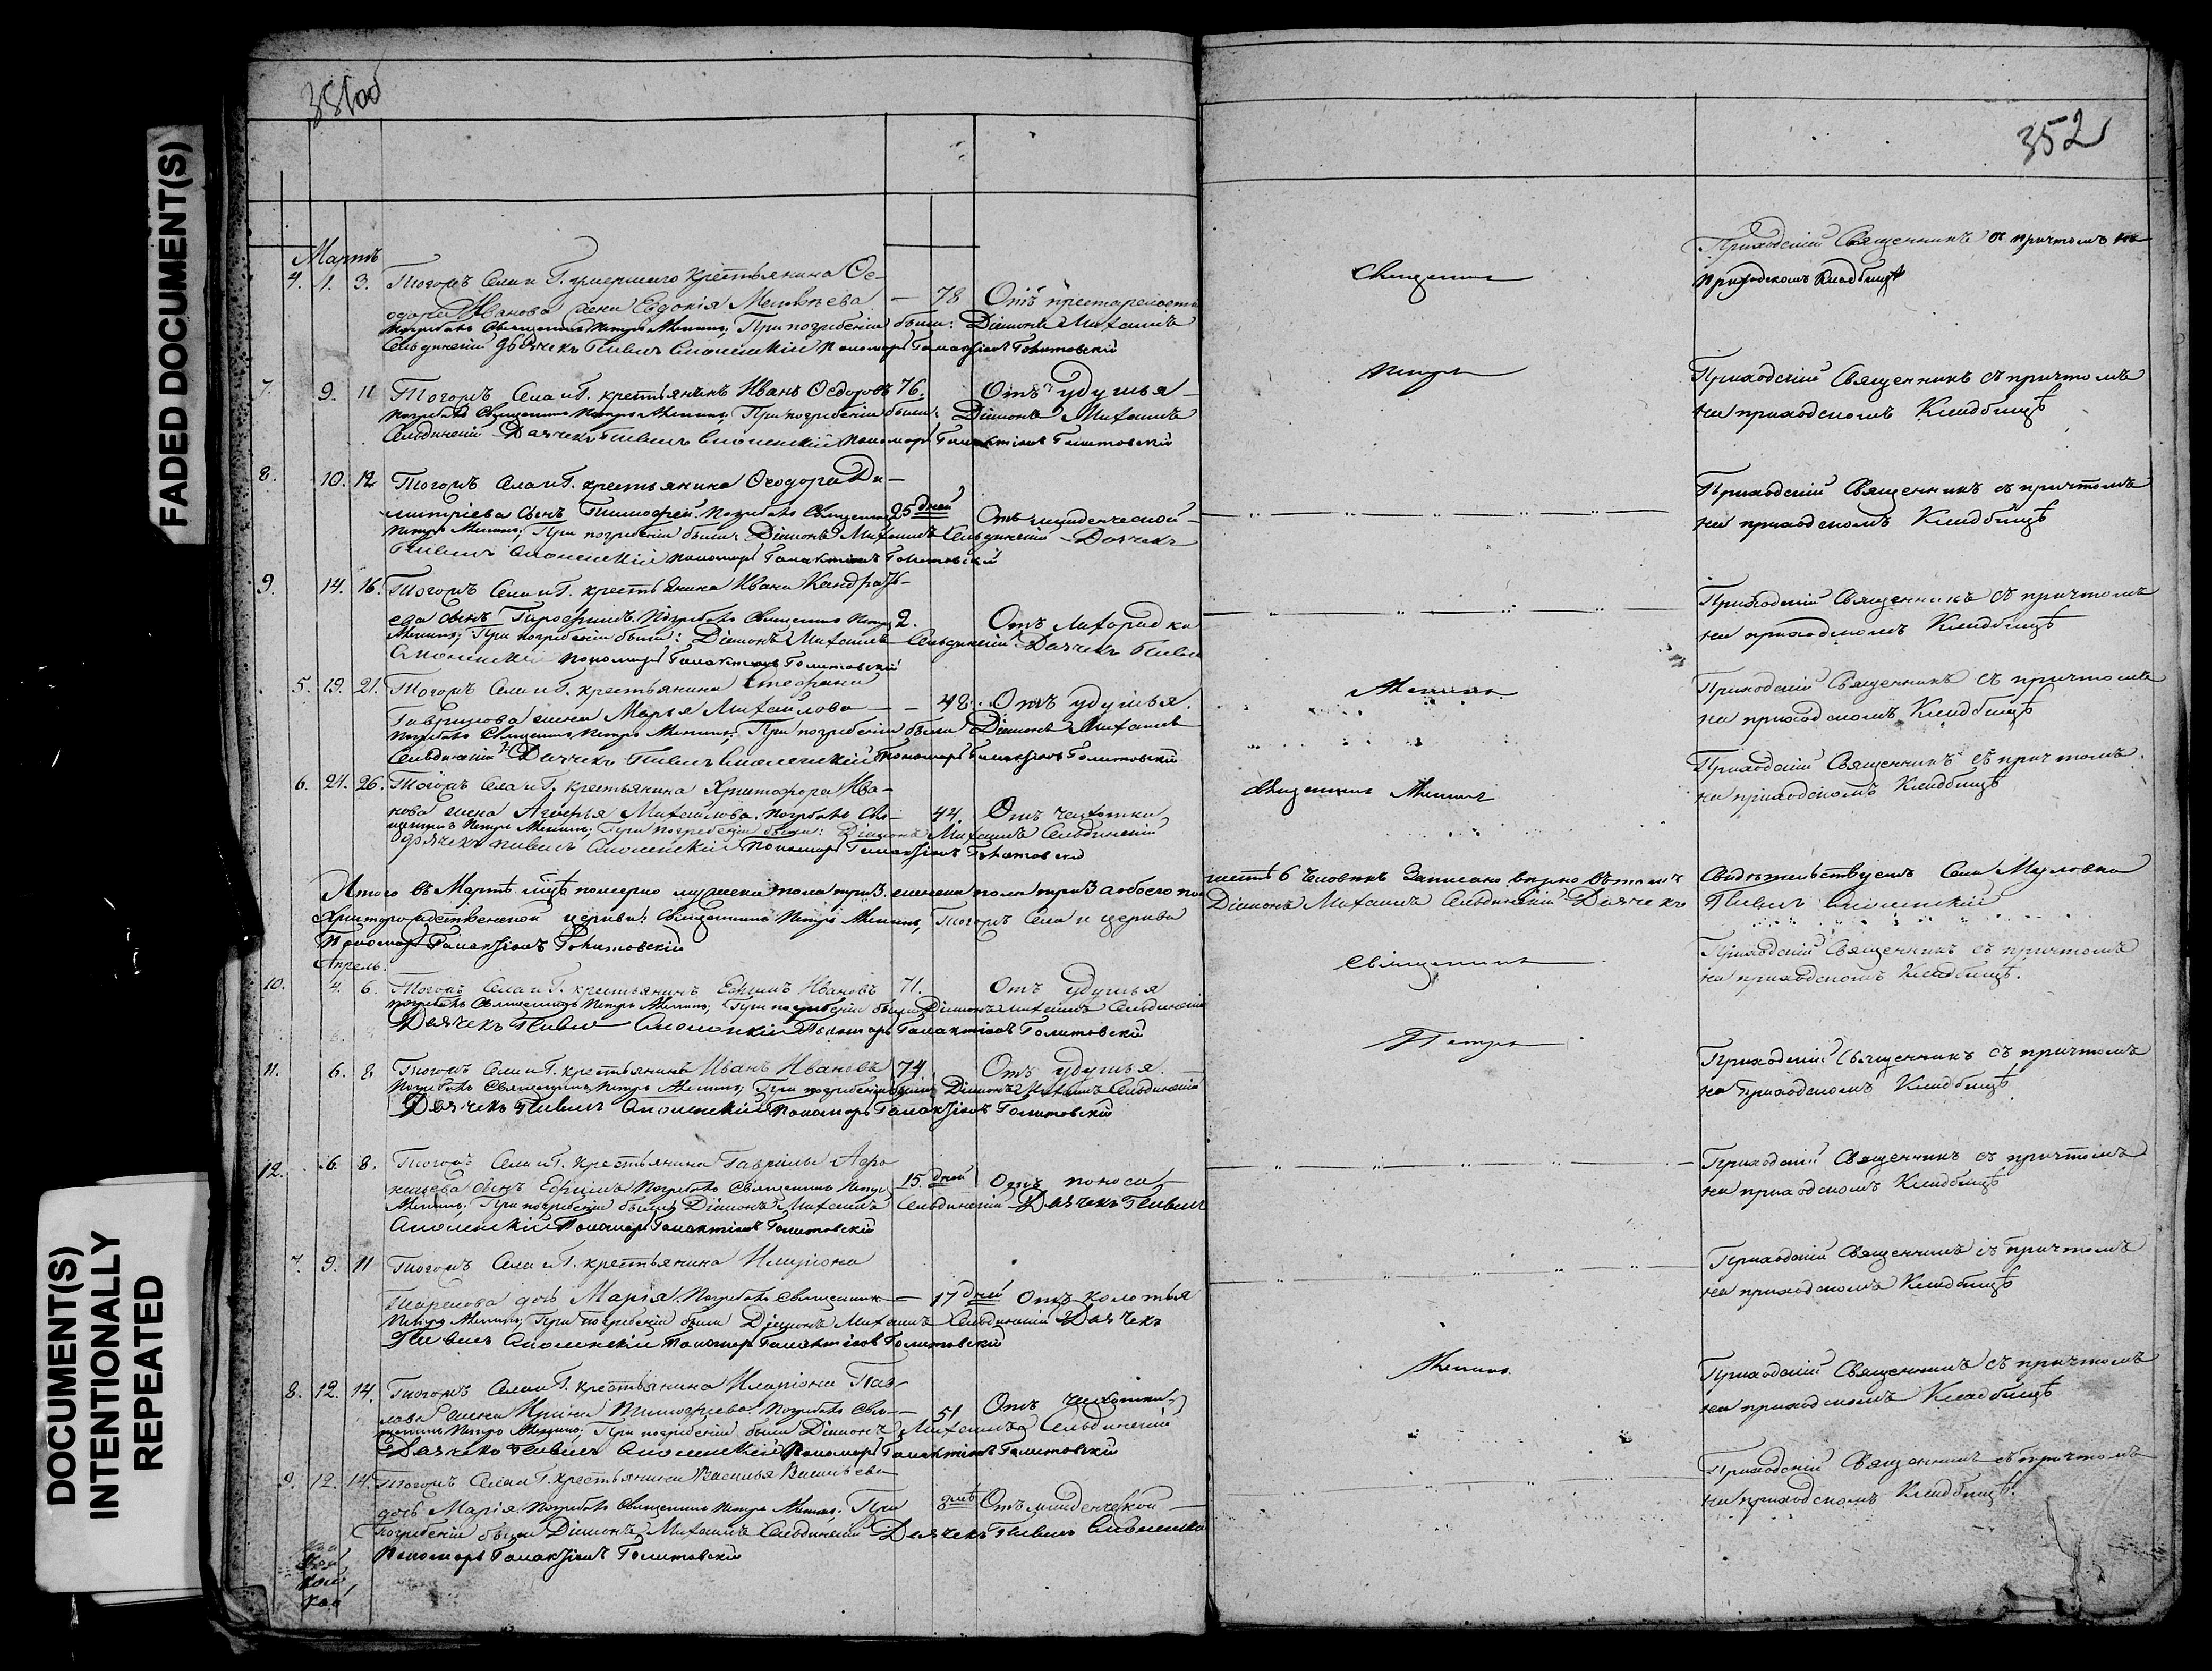 FADED DOCUMENT(S)
DOCUMENT(S)
INTENTIONALLY
REPEATED
352
Мартъ
4. 1. 3. Тогожъ Села и Г. умершаго крестьянина Ѳе-
одора Иванова жена Евдокія Матвѣева — 78 Отъ престарелости
погребалъ Священникъ Петръ При погребеніи были: Діаконъ Михаилъ
Дьячекъ Павелъ Смоленскій пономарь Галактіонъ
Священникъ
Приходскій Священникъ съ причтомъ на
приходскомъ кладбищѣ
7. 9. 11 Тогожъ Села и Г. крестьянинъ Иванъ Ѳедоровъ 76. Отъ удушья
погребалъ Священникъ Петръ При погребеніи были: Діаконъ Михаилъ
Дьячекъ Павелъ Смоленскій пономарь Галактіонъ
Петръ
Приходскій Священникъ съ причтомъ
на приходскомъ кладбищѣ
8. 10. 12 Тогожъ Села и Г. крестьянина Ѳеодора Ди-
митріева сынъ Тимофей. Погребалъ Священникъ 25 дней Отъ младенческой
Петръ При погребеніи были: Діаконъ Михаилъ Дьячекъ
Павелъ Смоленскій пономарь Галактіонъ
Приходскій Священникъ съ причтомъ
на приходскомъ кладбищѣ
9. 14. 16. Тогожъ Села и Г. крестьянина Ивана Кондрать-
ева сынъ Погребалъ Священникъ Петръ 2. Отъ лихорадки
При погребеніи были: Діаконъ Михаилъ Дьячекъ Павелъ
Смоленскій пономарь Галактіонъ
Приходскій Священникъ съ причтомъ
на приходскомъ кладбищѣ
5. 19. 21. Тогожъ Села и Г. крестьянина Стефана
Гаврилова жена Марья Михайлова — 48. Отъ удушья.
погребалъ Священникъ Петръ При погребеніи были Діаконъ Михаилъ
Дьячекъ Павелъ Смоленскій Пономарь Галактіонъ
Приходскій Священникъ съ причтомъ
на приходскомъ кладбищѣ
6. 24. 26. Тогожъ Села и Г. крестьянина Христофора Ива-
нова жена Агафья Михайлова. погребалъ Свя- 44. Отъ чахотки
щенникъ Петръ При погребеніи были: Діаконъ Михаилъ
Дьячекъ Павелъ Смоленскій пономарь Галактіонъ
Священникъ
Приходскій Священникъ съ причтомъ
на приходскомъ кладбищѣ
Итого въ Мартѣ м̃цѣ померло мужеска пола три 3. женска пола три 3 а обоего пола шесть 6 человѣкъ Записано вѣрно въ томъ Свидѣтельствуемъ Села
Христорождественской церкви Священникъ Петръ Тогожъ Села и церкви Діаконъ Михаилъ Дьячекъ Павелъ Смоленскій
Пономарь Галактіонъ
Апрель.
10. 4. 6. Тогожъ Села и Г. крестьянинъ Ефимъ Ивановъ 71. Отъ удушья
погребалъ Священникъ Петръ При погребеніи были Діаконъ Михаилъ
Дьячекъ Павелъ Смоленскій Пономарь Галактіонъ
Священникъ
Приходскій Священникъ съ причтомъ
на приходскомъ кладбищѣ.
11. 6. 8 Тогожъ Села и Г. крестьянинъ Иванъ Ивановъ 74 Отъ удушья.
Погребалъ Священникъ Петръ При погребеніи были Діаконъ Михаилъ
Дьячекъ Павелъ Смоленскій Пономарь Галактіонъ
Петръ
Приходскій Священникъ съ причтомъ
на приходскомъ кладбищѣ
12. 6. 8. Тогожъ Села и Г. крестьянина Гаврилы Аѳо-
сынъ Ефимъ Погребалъ Священникъ Петръ 15. дней Отъ поноса
При погребеніи были Діаконъ Михаилъ Дьячекъ Павелъ
Смоленскій Пономарь Галактіонъ
Приходскій Священникъ съ причтомъ
на приходскомъ кладбищѣ
7. 9. 11 Тогожъ Села и Г. крестьянина Иларіона
дочь Марія. Погребалъ Священникъ — 17 дней Отъ колотья
Петръ При погребеніи были Діаконъ Михаилъ Дьячекъ
Павелъ Смоленскій пономарь Галактіонъ
Приходскій Священникъ съ причтомъ
на приходскомъ кладбищѣ
8. 12. 14. Тогожъ Села и Г. крестьянина Иларіона Пав-
лова жена Ирина Тимофѣева. Погребалъ Свя- 51 Отъ чахотки
щенникъ Петръ При погребеніи были Діаконъ Михаилъ
Дьячекъ Павелъ Смоленскій Пономарь Галактіонъ
Приходскій Священникъ съ причтомъ
на приходскомъ кладбищѣ
9. 12. 14. Тогожъ Села и Г. крестьянина Василья Васильева
дочь Марія. Погребалъ Священникъ Петръ При Отъ младенческой
погребеніи были Діаконъ Михаилъ Дьячекъ Павелъ
Пономарь Галактіонъ
Приходскій Священникъ съ причтомъ
на приходскомъ кладбищѣ.